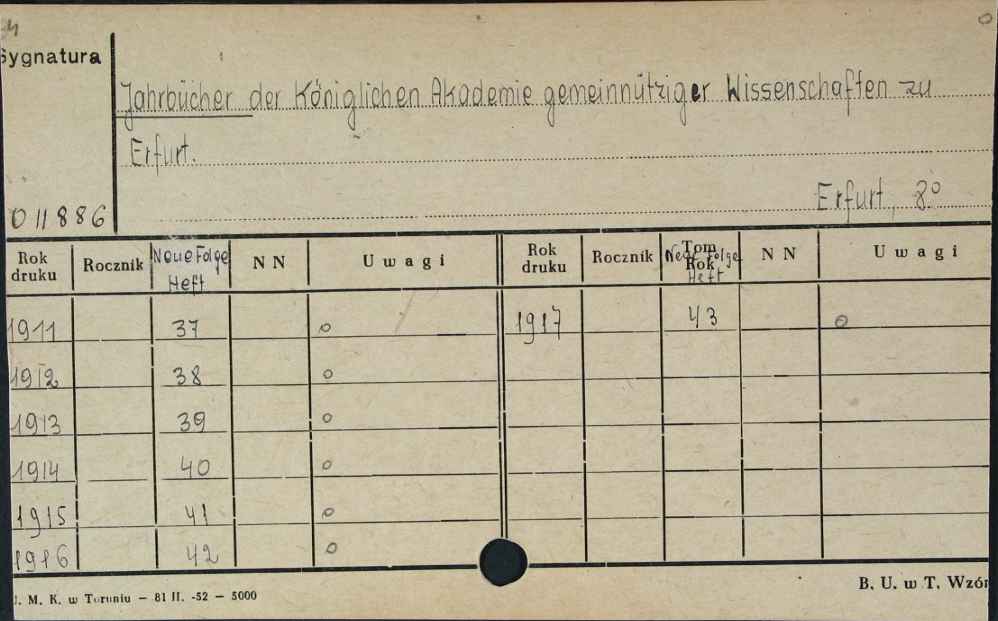 Sygnatura
Jahrbücher der Königlichen Akademie gemeinnütziger Wissenschaften zu
Erfurt.
Erfurt, 8°
011886
Rok druku Rocznik Neue Folge Heft NN Uwagi Rok druku Rocznik Tom Rok Neue Folge Heft NN Uwagi
1911 37 o 1917 43 o
1912 38 o
1913 39 o
1914 40 o
1915 41 o
1916 42 o
U. M. K. w Toruniu — 81 II. -52 — 5000
B. U. w T. Wzór